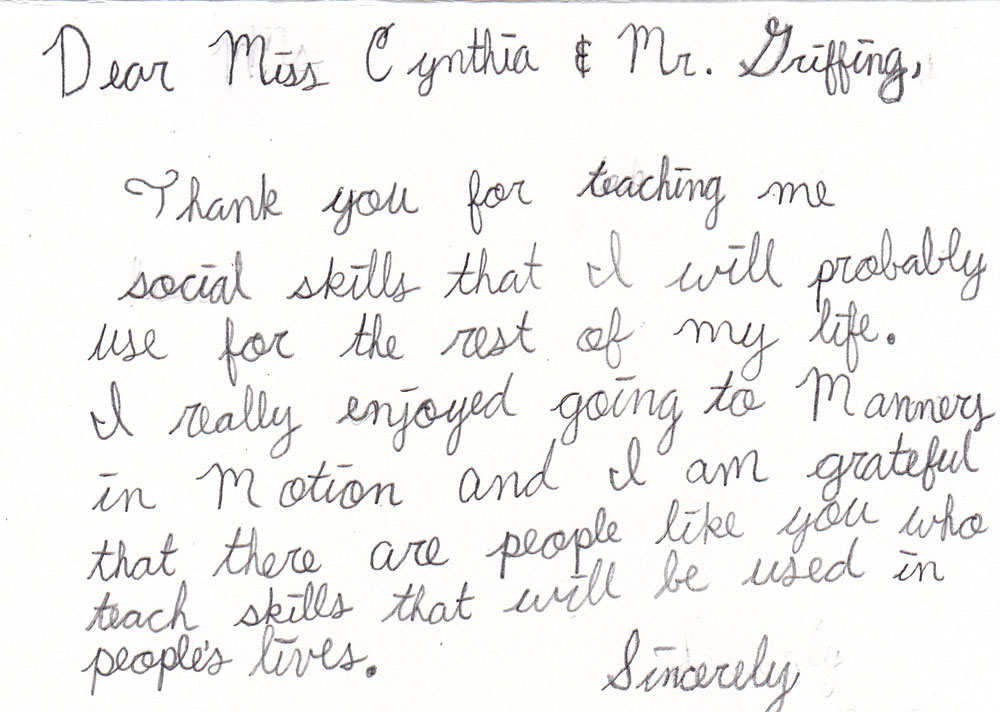 Dear Miss Cynthia & Mr. Griffing,
Thank you for teaching me
social skills that I will probably
use for the rest of my life.
I really enjoyed going to Manners
in Motion and I am grateful
that there are people like you who
teach skills that will be used in
people's lives.
Sincerely